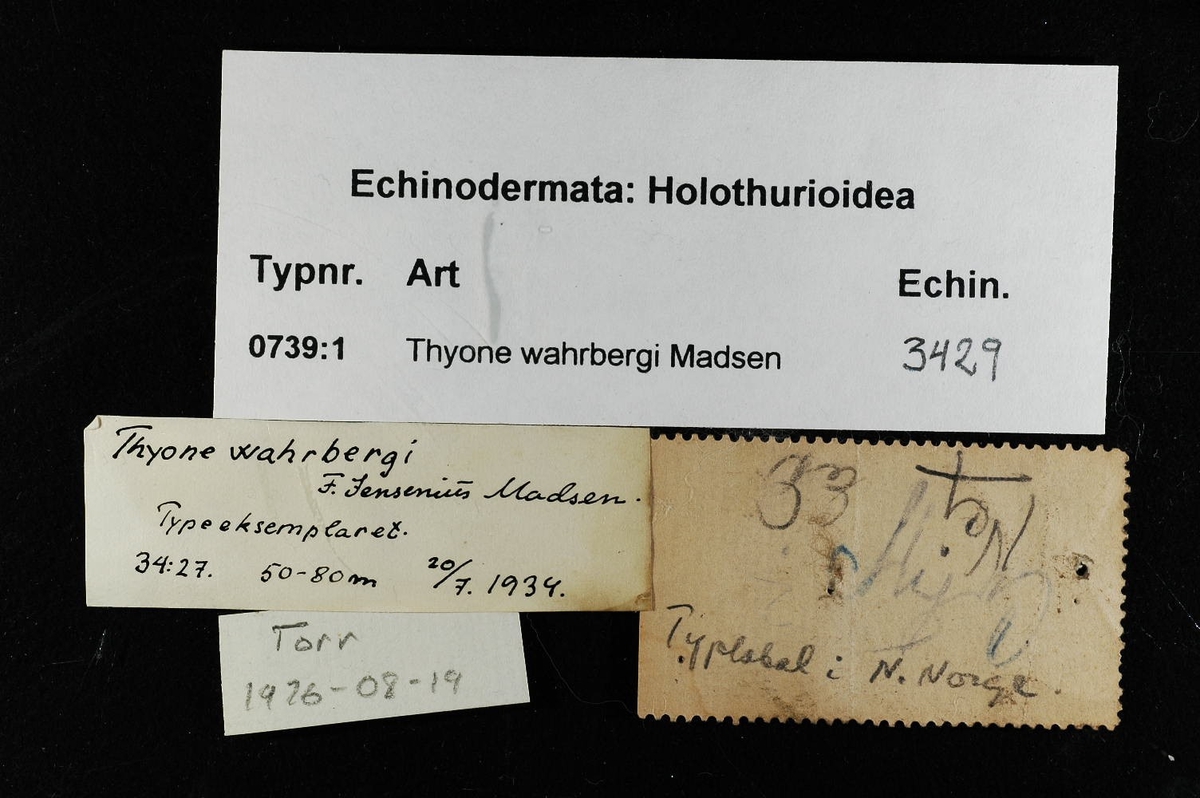 Echinodermata: Holothurioidea
Typnr. Art Echin.
0739:1 Thyone wahrbergi Madsen 3429
Thyone wahrbergi
F. Jensenius Madsen.
Typeeksemplaret.
34:27. 50-80m 20/7. 1934.
Torr
1976-08-19
33
Typlokal i N. Norge.